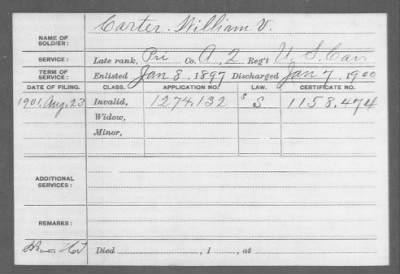 NAME OF SOLDIER: Carter, William V.
SERVICE: Late rank, Pri Co. A, 2 Reg't U. S. Cav
TERM OF SERVICE: Enlisted Jan 8, 1897 Discharged Jan 7, 1900
DATE OF FILING. CLASS. APPLICATION NO. LAW. CERTIFICATE NO.
1901, Aug. 23 Invalid, 1274,132 S 1158,474
Widow,
Minor,
ADDITIONAL SERVICES:
REMARKS:
Died , 1 , at